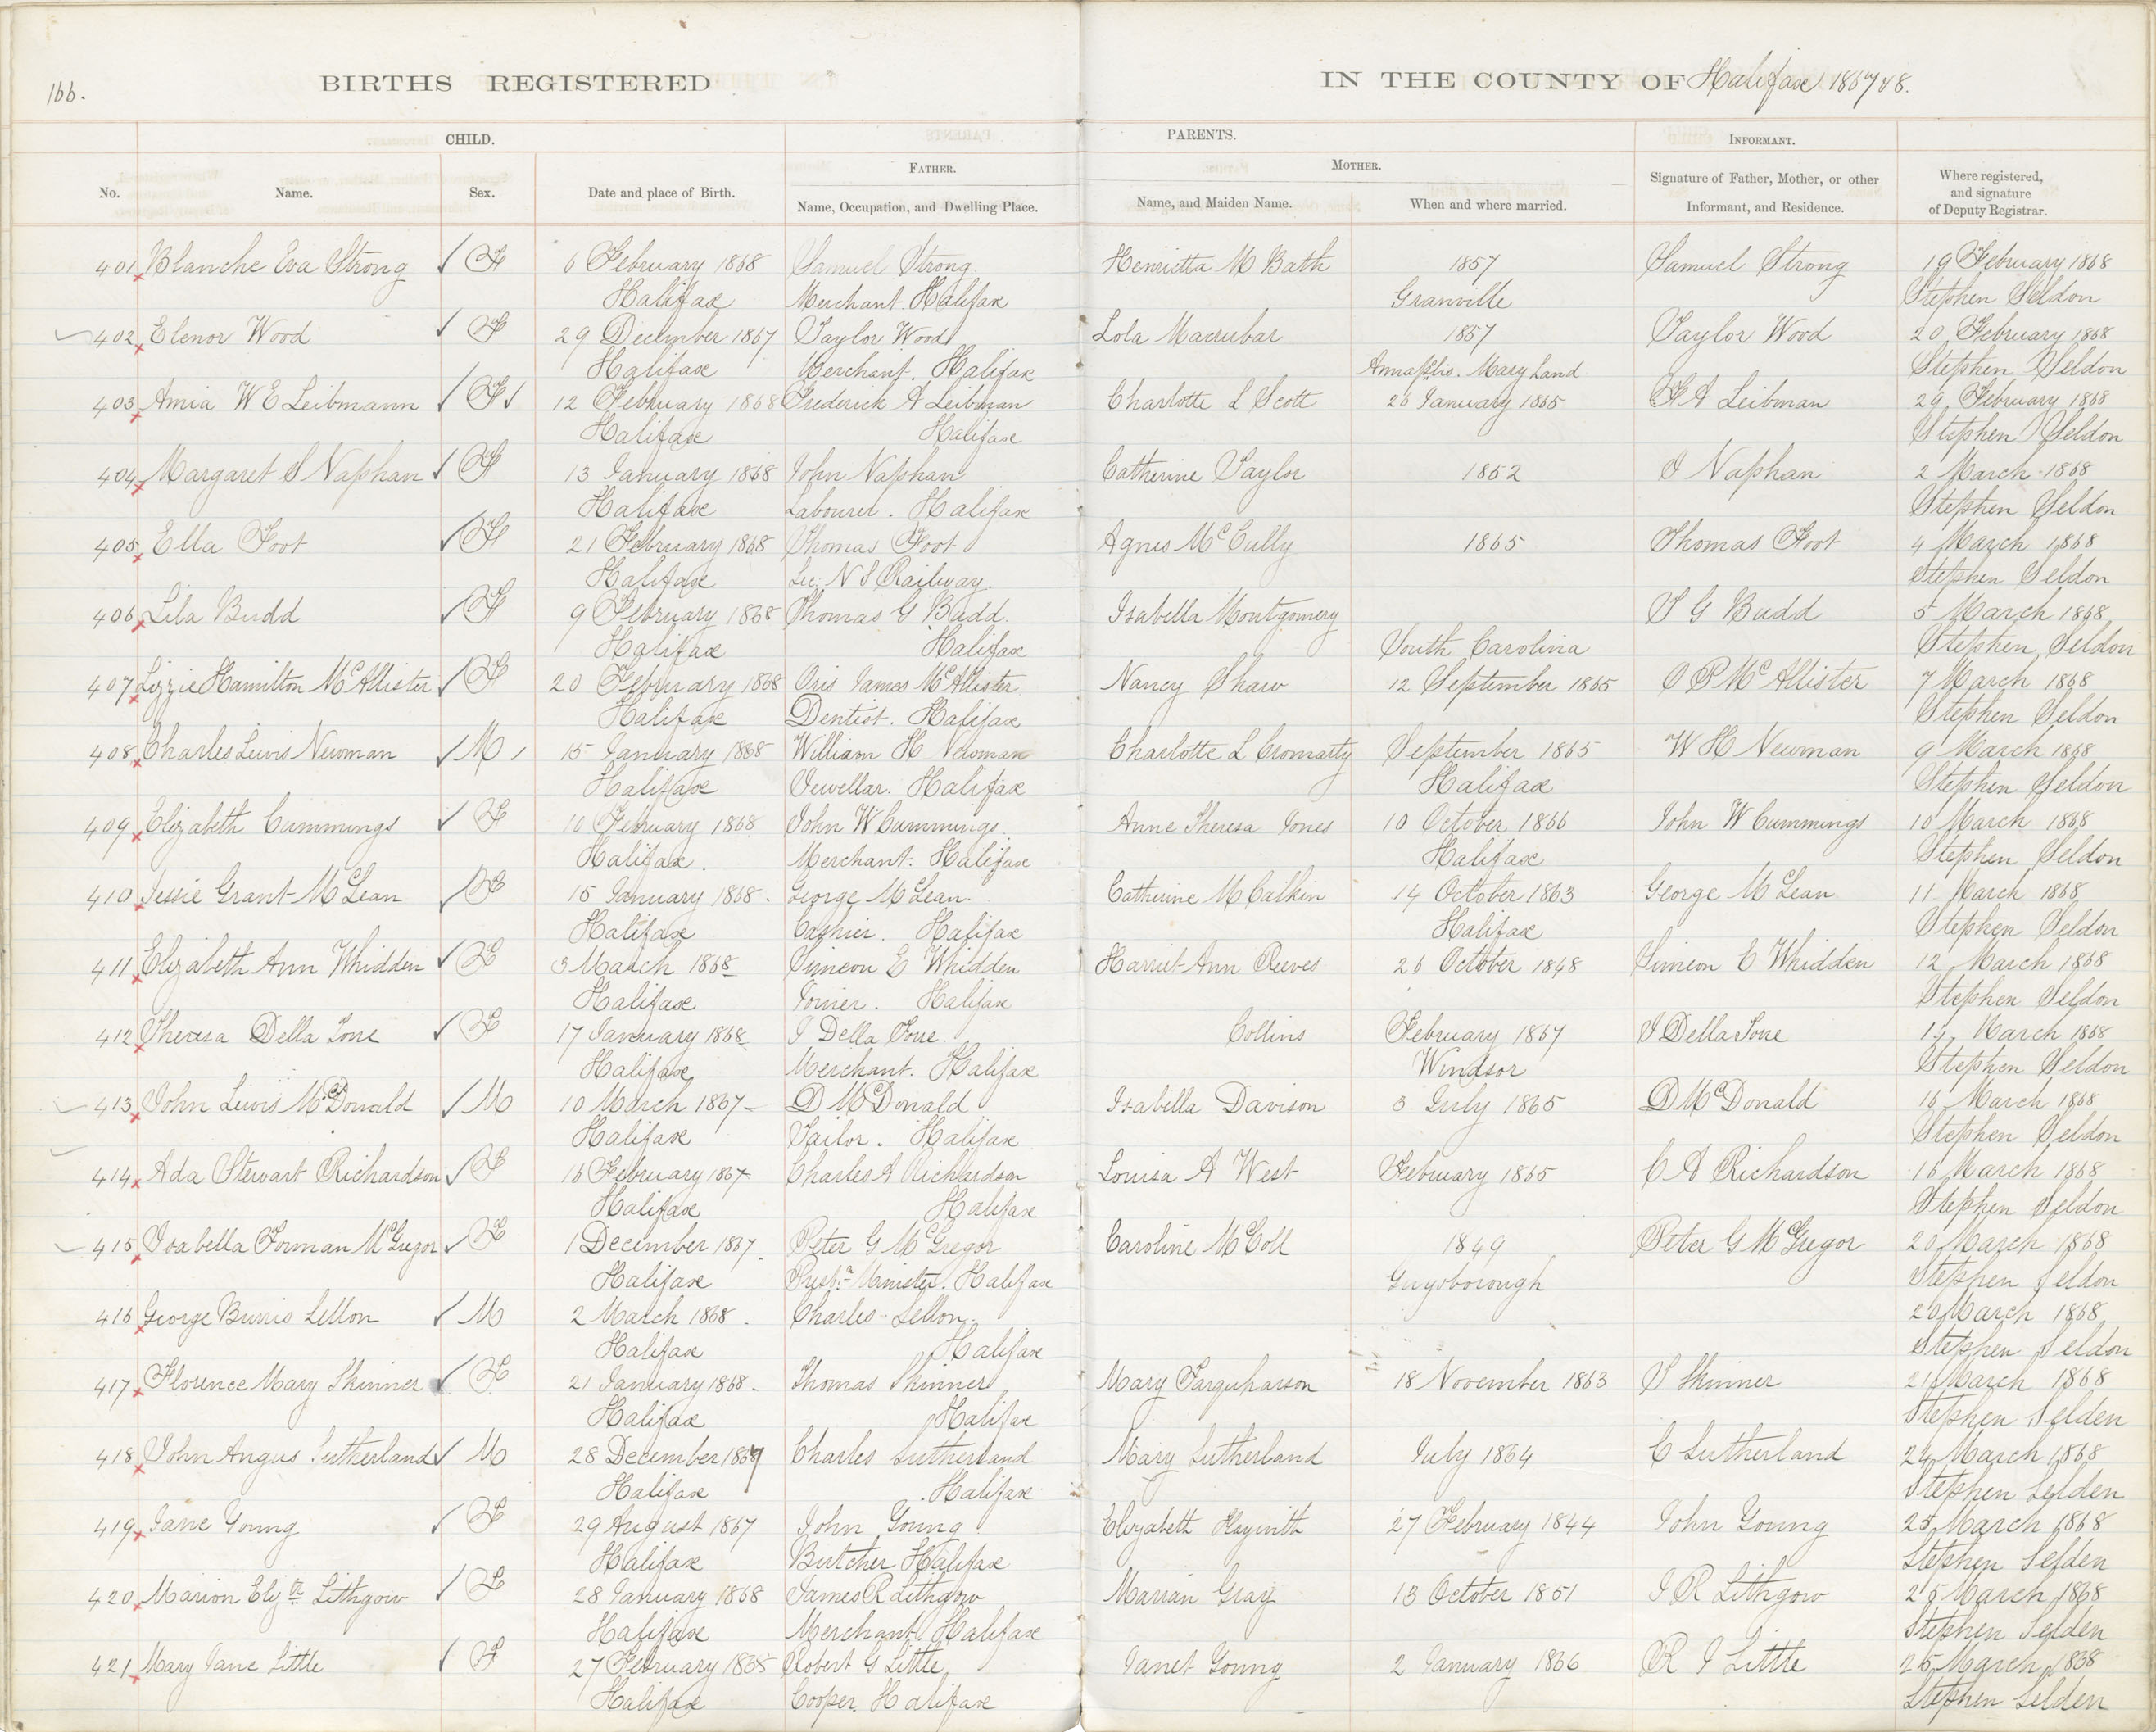 166.
BIRTHS REGISTERED IN THE COUNTY OF Halifax 1867 & 8.
CHILD. PARENTS. INFORMANT.
FATHER. MOTHER.
No. Name. Sex. Date and place of Birth. Name, Occupation, and Dwelling Place. Name, and Maiden Name. When and where married. Signature of Father, Mother, or other Informant, and Residence. Where registered, and signature of Deputy Registrar.
401 Blanche Eva Strong F 6 February 1868 Samuel Strong Henrietta M Bath 1857 Samuel Strong 19 February 1868
Halifax Merchant. Halifax Granville Stephen Seldon
402 Elenor Wood F 29 December 1867 Taylor Wood Lola Macrubar 1857 Taylor Wood 20 February 1868
Halifax Merchant. Halifax Annapolis. Mary Land Stephen Seldon
403 Amia W E Leibmann F 12 February 1868 Frederick A Leibman Charlotte L Scott 26 January 1865 F A Leibman 29 February 1868
Halifax Halifax Stephen Seldon
404 Margaret S Naphan F 13 January 1868 John Naphan Catherine Taylor 1852 J Naphan 2 March 1868
Halifax Labourer. Halifax Stephen Seldon
405 Ella Foot F 21 February 1868 Thomas Foot Agnes McCully 1865 Thomas Foot 4 March 1868
Halifax Sec. N S Railway. Stephen Seldon
406 Lila Budd F 9 February 1868 Thomas G Budd. Isabella Montgomery T G Budd 5 March 1868
Halifax Halifax South Carolina Stephen Seldon
407 Lizzie Hamilton McAllister F 20 February 1868 Oris James McAllister. Nancy Shaw 12 September 1865 O P McAllister 7 March 1868
Halifax Dentist. Halifax Stephen Seldon
408 Charles Lewis Newman M 15 January 1868 William H Newman Charlotte L Cromarty September 1865 W H Newman 9 March 1868
Halifax Jewellar. Halifax Halifax Stephen Seldon
409 Elizabeth Cummings F 10 February 1868 John W Cummings. Anne Theresa Jones 10 October 1866 John W Cummings 10 March 1868
Halifax. Merchant. Halifax Halifax Stephen Seldon
410 Jessie Grant McLean F 15 January 1868. George McLean. Catherine McCalkin 14 October 1863 George McLean 11 March 1868
Halifax Cashier. Halifax Halifax Stephen Seldon
411 Elizabeth Ann Whidden F 3 March 1868 Simeon E Whidden Harriet Ann Reeves 26 October 1848 Simeon E Whidden 12 March 1868
Halifax Joiner. Halifax Stephen Seldon
412 Theresa Della Tone F 17 January 1868 J Della Tone Collins February 1867 J Della Tone March 1868
Halifax Merchant. Halifax Windsor Stephen Seldon
413 John Lewis McDonald M 10 March 1867 D McDonald Isabella Davison 3 July 1865 D McDonald 16 March 1868
Halifax Tailor. Halifax Stephen Seldon
414 Ada Stewart Richardson F 16 February 1867 Charles A Richardson Louisa A West February 1865 C A Richardson 16 March 1868
Halifax Halifax Stephen Seldon
415 Isabella Forman McGregor F 1 December 1867. Peter G McGregor Caroline McColl 1849 Peter G McGregor 20 March 1868
Halifax Presbn Minister. Halifax Guysborough Stephen Seldon
416 George Burris Lellon M 2 March 1868. Charles Lellon. 20 March 1868
Halifax Halifax Stephen Seldon
417 Florence Mary Skinner F 21 January 1868 Thomas Skinner Mary Farquharson 18 November 1863 T Skinner 21 March 1868
Halifax Halifax Stephen Selden
418 John Angus Sutherland M 28 December 1867 Charles Sutherland Mary Sutherland July 1864 C Sutherland 24 March 1868
Halifax Halifax Stephen Selden
419 Jane Young F 29 August 1867 John Young Elizabeth 27 February 1844 John Young 25 March 1868
Halifax Butcher Halifax Stephen Selden
420 Marion Elizth Lithgow F 28 January 1868 James R Lithgow Marian Gray 13 October 1851 J R Lithgow 25 March 1868
Halifax Merchant. Halifax Stephen Selden
421 Mary Jane Little F 27 February 1868 Robert G Little Janet Young 2 January 1866 R J Little 25 March 1868
Halifax Cooper. Halifax Stephen Selden